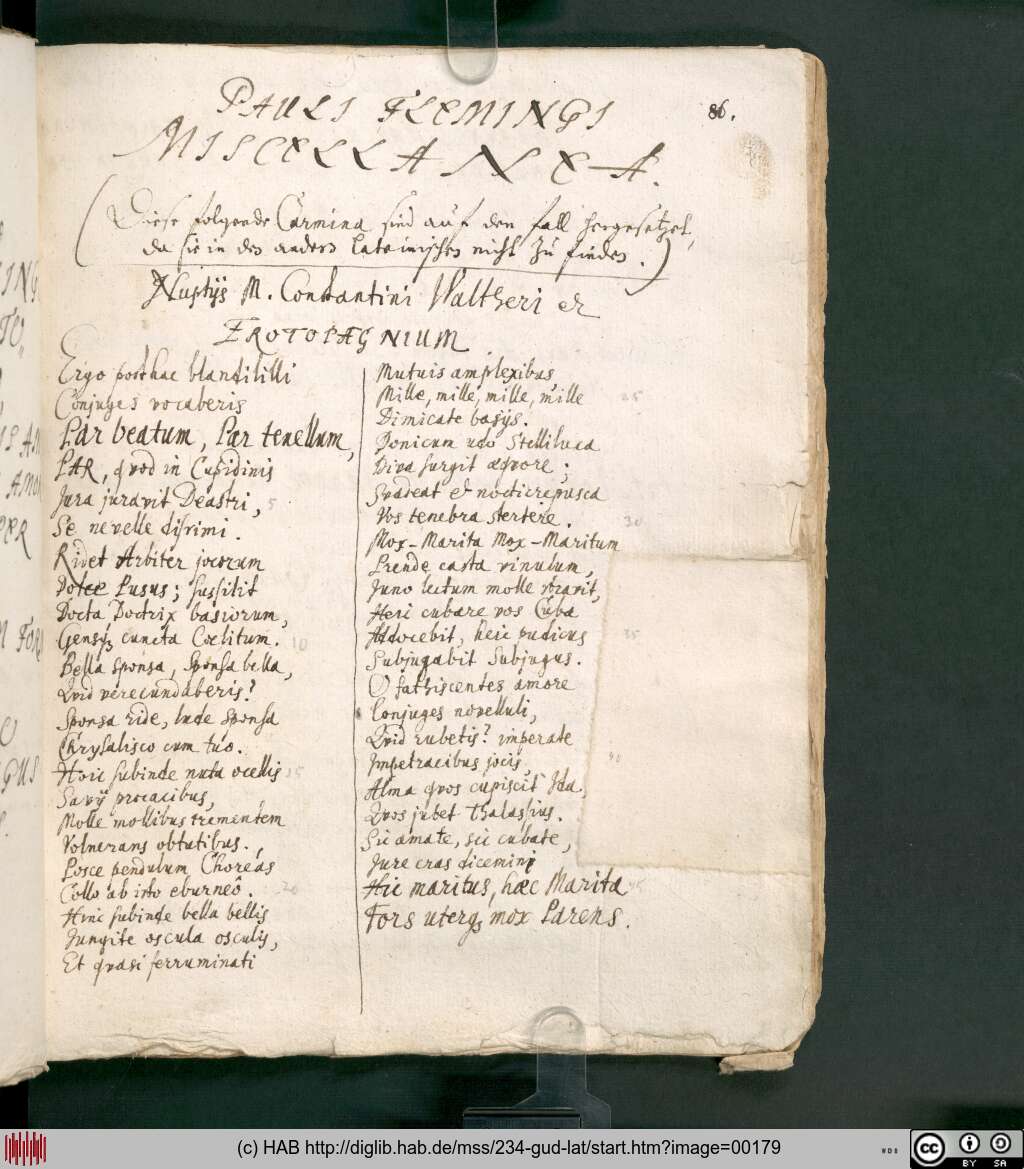 86.
PAULI FLEMINGI
MISCELLANEA.
(Diese folgende Carmina sind auf den fall hergesetzet,
da sie in den andern Lateinischen nicht zu finden.)
Nuptijs M. Constantini Waltheri et
EROTOPÆGNIUM
Ergo posthac blandililli
Conjuges vocaberis
Par beatum, Par tenellum,
PAR, qvod in Cupidinis
Jura juravit Deastri, 5
Se nevelle disrimi.
Ridet Arbiter jocorum
Docee Lusus; sussilit
Docta Doctrix basiorum,
Gensq; cuncta Coelitum. 10
Bella Sponsa, Sponsa bella,
Qvid verecundaberis?
Sponsa ride, lude Sponsa
Chrysalisco cum tuo.
Huic subinde nuta ocellis 15
Savij procacibus,
Molle mollibus trementem
Volnerans obtutibus.
Posce pendulum Choreas
Collo ab isto eburneô. 20
Hinc subinde bella bellis
Jungite oscula osculis,
Et qvasi ferruminati
Mutuis amplexibus
Mille, mille, mille, mille 25
Dimicate basijs.
Donicum udo Stelliluca
Diva surgit æqvore;
Svadeat et noctícrepusca
Vos tenebra stertere. 30
Mox-Marita Mox-Maritum
Prende casta vinulum,
Juno lectum molle stravit,
Heic cubare vos Cuba
Addocebit, heic pudicus 35
Subjugabit Subjugus.
O fathiscentes amore
Conjuges novelluli,
Qvid rubetis? imperate
Impetracibus jocis, 40
Alma qvos cupiscit Ida,
Qvos jubet Thalassius.
Sic amate, sic cubate,
Jure cras dicemini
Hic maritus, hæc Marita 45
Fors uterq; mox Parens.
(c) HAB http://diglib.hab.de/mss/234-gud-lat/start.htm?image=00179
WDB
cc
BY SA